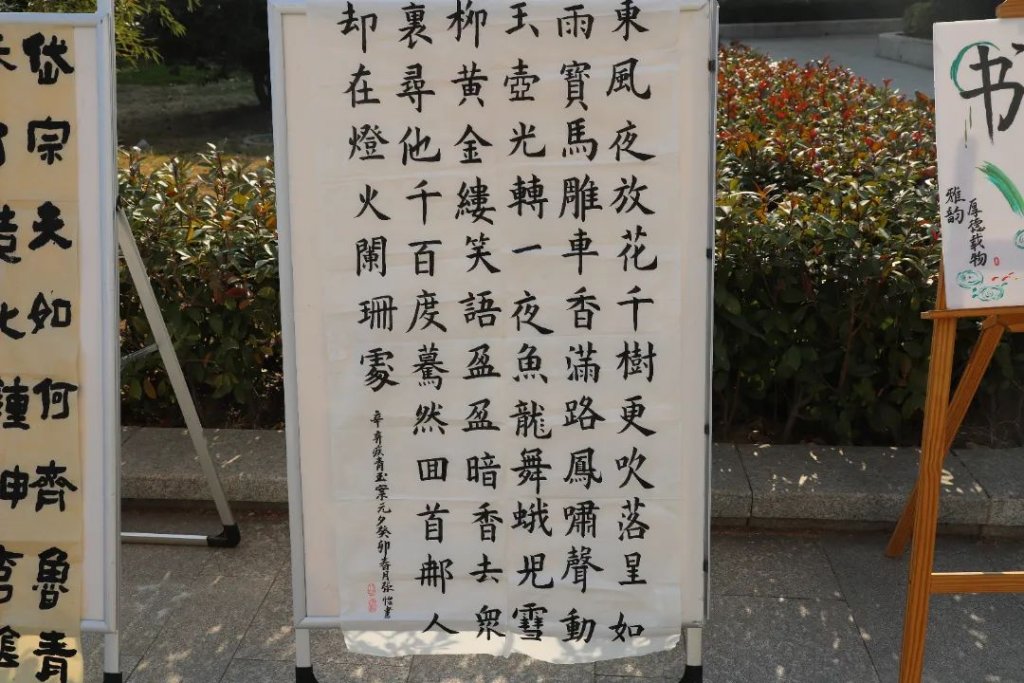 书
厚德载物
雅韵
東風夜放花千樹更吹落星如
雨寶馬雕車香滿路鳳嘯聲動
玉壺光轉一夜魚龍舞蛾児雪
柳黄金縷笑語盈盈暗香去眾
裏尋他千百度驀然回首那人
却在燈火闌珊處
辛弃疾青玉案元夕癸卯春月张怡書
岱宗夫如何齊魯青
造化鍾神秀陰